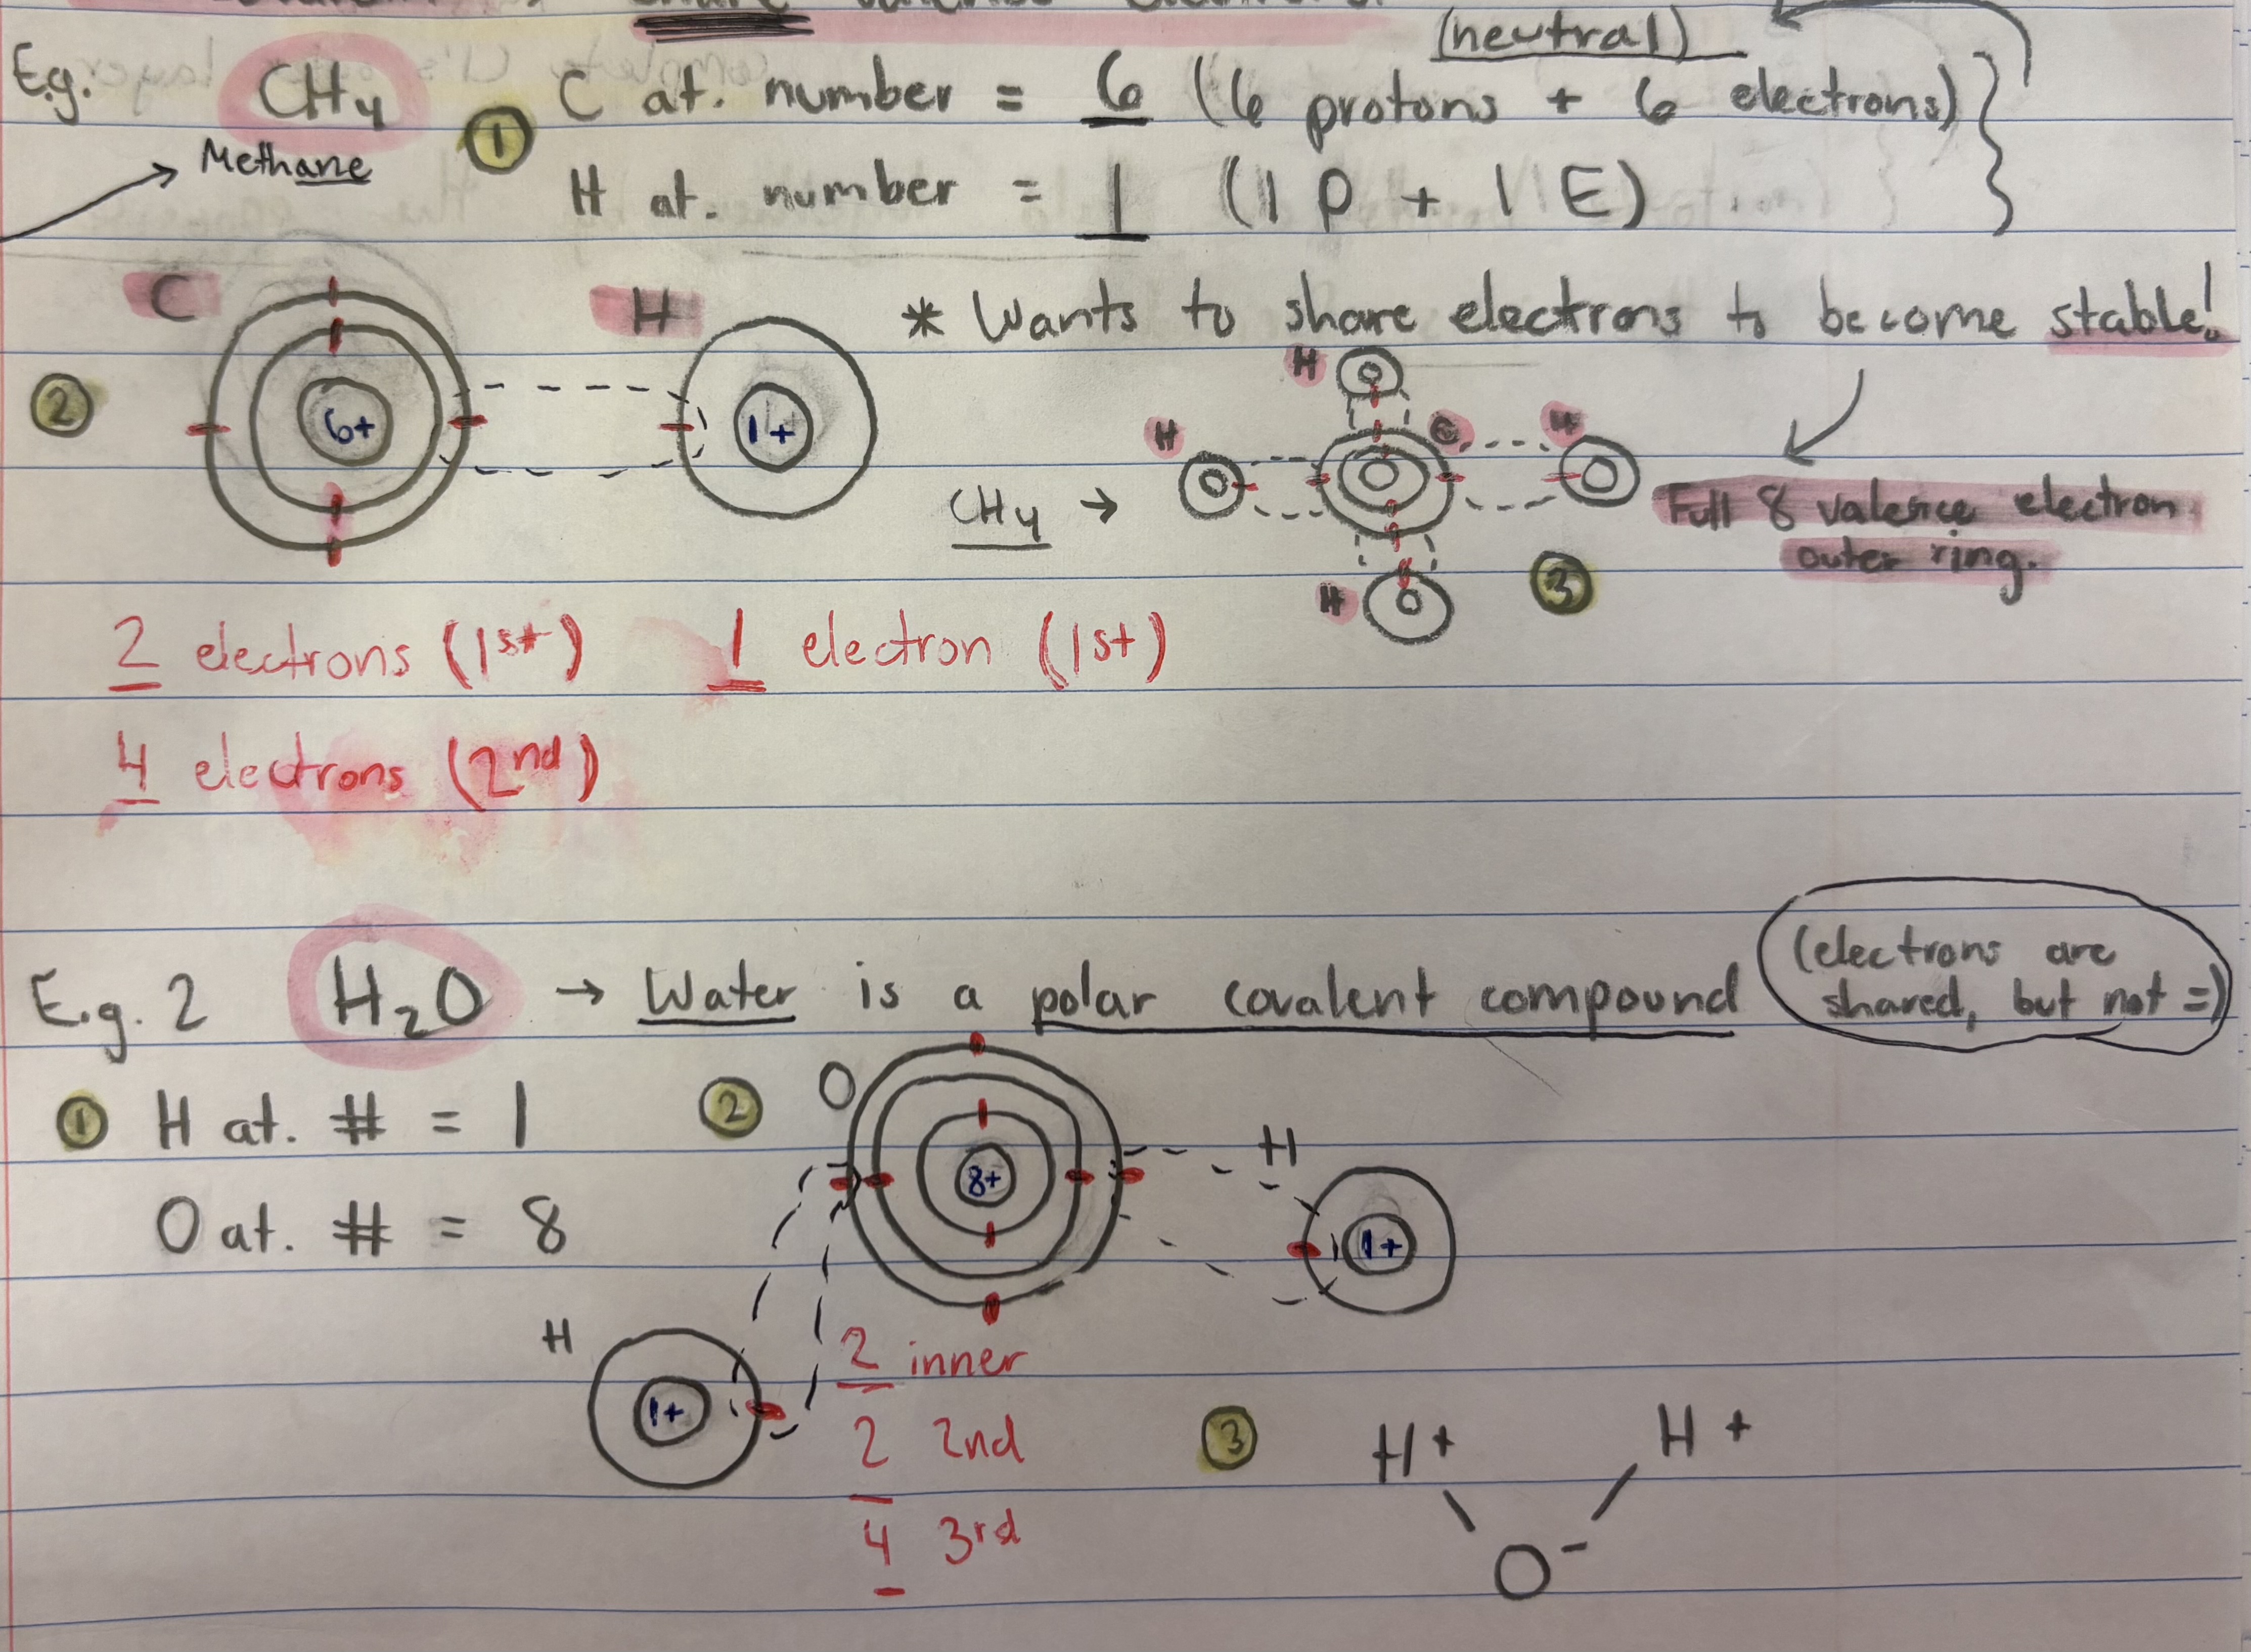 share valence electrons.
(neutral)
E.g. CH4 ① C at. number = 6 (6 protons + 6 electrons)
Methane
H at. number = 1 (1 P + 1 E)
C H * Wants to share electrons to become stable!
② 6+ 1+
H
H C H
CH4 →
H
③
Full 8 valence electron
outer ring.
2 electrons (1st) 1 electron (1st)
4 electrons (2nd)
E.g. 2 H2O → Water is a polar covalent compound
(electrons are
shared, but not =)
① H at. # = 1
O at. # = 8
② O
8+
H
1+
H
1+
2 inner
2 2nd
4 3rd
③ H+ H+
O-